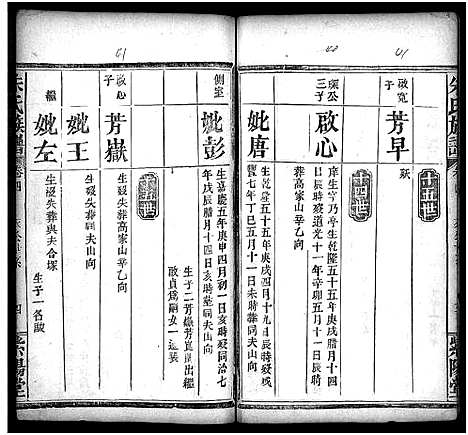 61
60
61
朱氏族譜
啟寬
子
芳早
殀
十四世
琛公
三子
啟心
庠生字乃亭生乾隆五十五年庚戌四月十一日
日辰時歿道光十一年辛卯五月十一日辰時
葬高家山辛乙向
妣唐
生乾隆五十五年庚戌四月十九日辰時歿咸
豐七年丁巳五月十一日未時葬同夫山向
側室
妣彭
生嘉慶五年庚申四月初一日亥時歿同治七
年戊辰臘月十四日亥時葬同夫山向
生子二芳嶽芳崑崑出繼
啟貞為嗣女一適
十五世
啟心
子
芳嶽
生歿失葬高家山辛乙向
妣王
生歿失葬同夫山向
繼
妣左
生歿失葬與夫合塚
生子一名駿
朱氏族譜
卷四
四
紫陽堂
紫陽堂